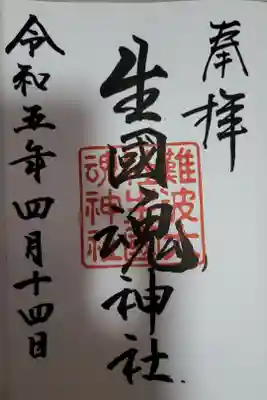 奉拝
生國魂神社
令和五年四月十四日
難波大
魂神社